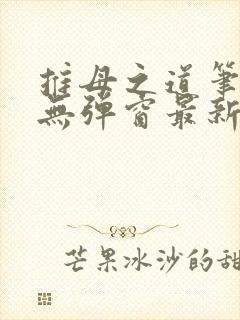 推母之道筆
無彈窗最新
芒果冰沙的甜